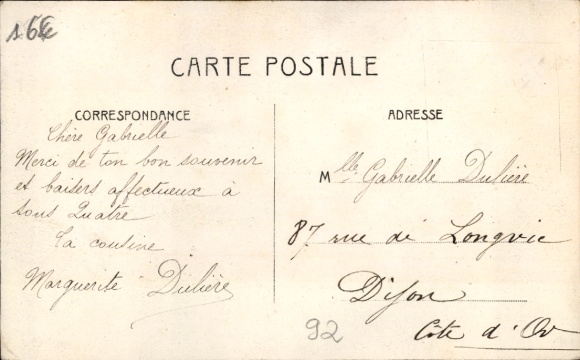 CARTE POSTALE
CORRESPONDANCE
Chère Gabrielle
Merci de ton bon souvenir
et baisers affectueux à
tous Quatre
Ta cousine
Marguerite Dulière
ADRESSE
Mlle Gabrielle Dulière
87 rue de Longvic
Dijon
Côte d'Or
92